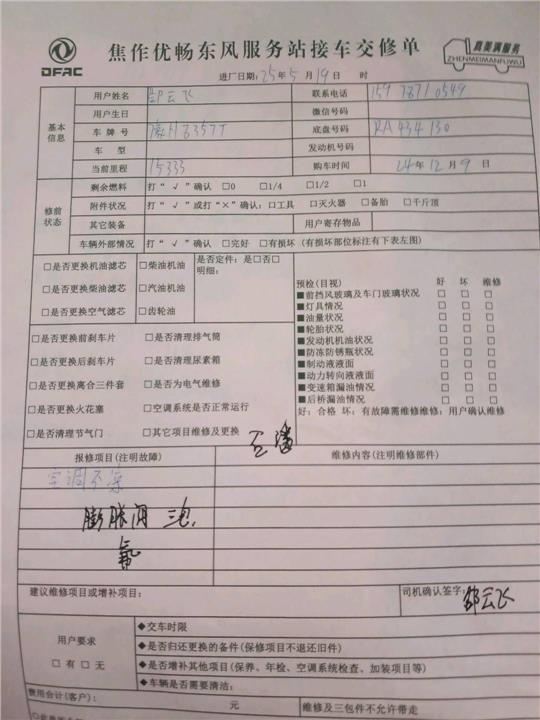 DFAC
焦作优畅东风服务站接车交修单
真美满服务
ZHENMEIMANFUWU
进厂日期:25年5月19日 时
基本信息
用户姓名 邵云飞 联系电话
用户生日 微信号码
车牌号 底盘号码 RA434130
车型 发动机号码
当前里程 15333 购车时间 24年12月9日
修前状态
剩余燃料 打“√”确认 □0 □1/4 □1/2 □1
附件状况 打“√”或打“×”确认:口工具 □灭火器 □备胎 □千斤顶
其它装备 用户寄存物品
车辆外部情况 打“√”确认 □完好 □有损坏 (有损坏部位标注有下表左图)
□是否更换机油滤芯 □柴油机油
□是否更换柴油滤芯 □汽油机油
□是否更换空气滤芯 □齿轮油
是否定件:是□否□
明细:
□是否更换前刹车片 □是否清理排气筒
□是否更换后刹车片 □是否清理尿素箱
□是否更换离合三件套 □是否为电气维修
□是否更换火花塞 □空调系统是否正常运行
□是否清理节气门 □其它项目维修及更换
预检(目视) 好 坏 维修
■前挡风玻璃及车门玻璃状况 □ □ □
■灯具情况 □ □ □
■油量状况 □ □ □
■轮胎状况 □ □ □
■发动机机油状况 □ □ □
■防冻防锈瓶状况 □ □ □
■制动液液面 □ □ □
■动力转向液液面 □ □ □
■变速箱漏油情况 □ □ □
■后桥漏油情况 □ □ □
好:合格 坏:有故障需维修维修:用户确认维修
报修项目(注明故障) 维修内容(注明维修部件)
空调不凉
膨胀阀
氟
建议维修项目或增补项目: 司机确认签字: 邵云飞
用户要求
□有 □无
◆交车时限
◆是否归还更换的备件(保修项目不退还旧件)
◆是否增补其他项目(保养、年检、空调系统检查、加装项目等)
◆车辆是否需要清洁:
费用合计(客户): 元 维修及三包件不允许带走